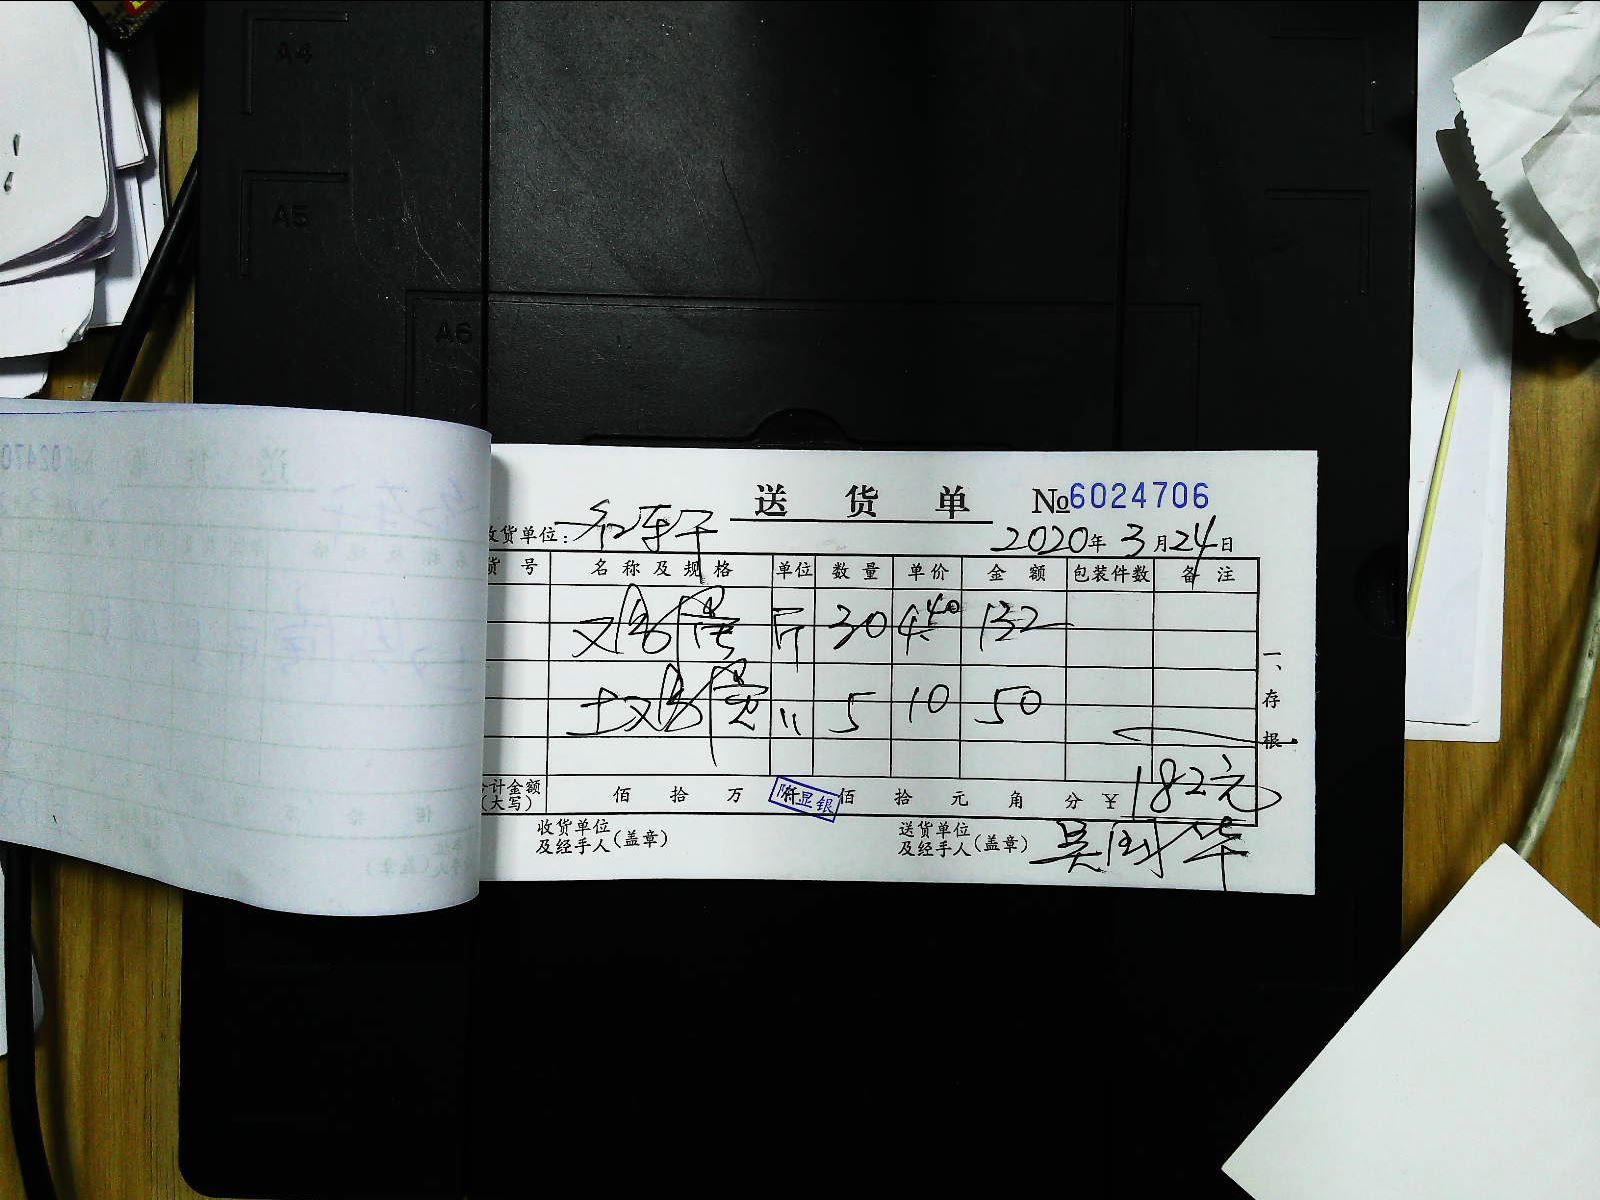 A4
A5
A6
送 货 单 №6024706
收货单位： 2020年3月24日
货号 名称及规格 单位 数量 单价 金额 包装件数 备注
又鸟蛋 斤 30 4.40 132
土又鸟蛋 〃 5 10 50
一、存根
合计金额（大写） 佰 拾 万 仟 佰 拾 元 角 分 ￥182元
陈显银
收货单位及经手人（盖章） 送货单位及经手人（盖章） 吴国华